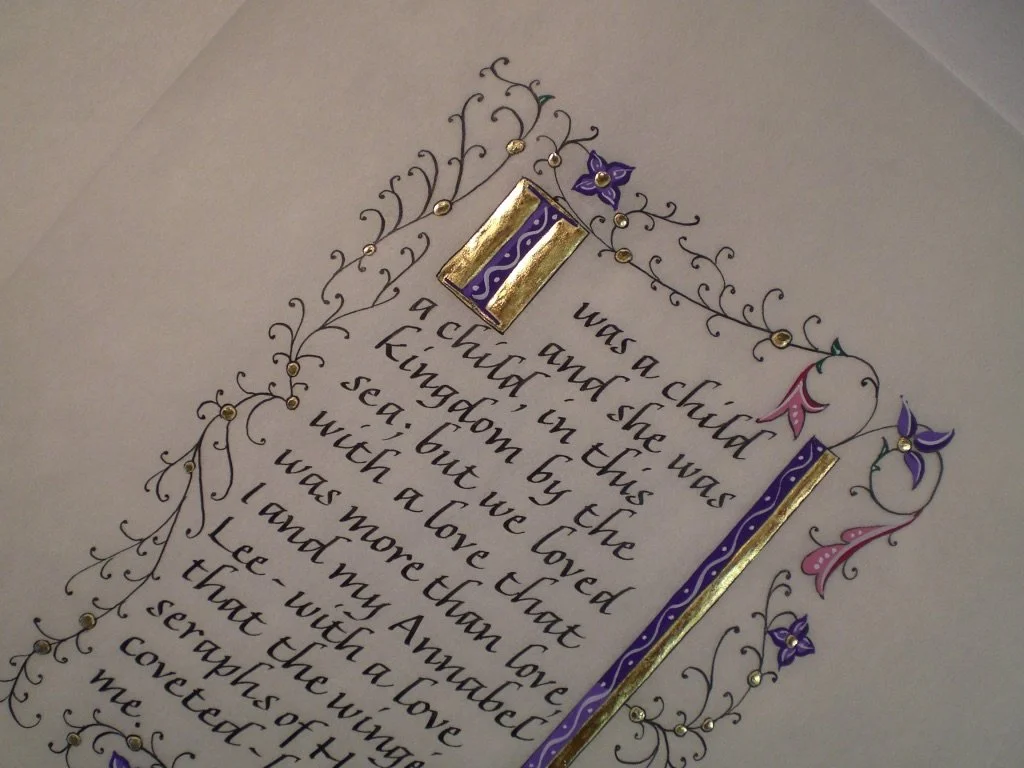 I was a child
and she was
a child, in this
kingdom by the
sea; but we loved
with a love that
was more than love,
I and my Annabel
Lee - with a love
that the winge
seraphs of H
coveted -
me.